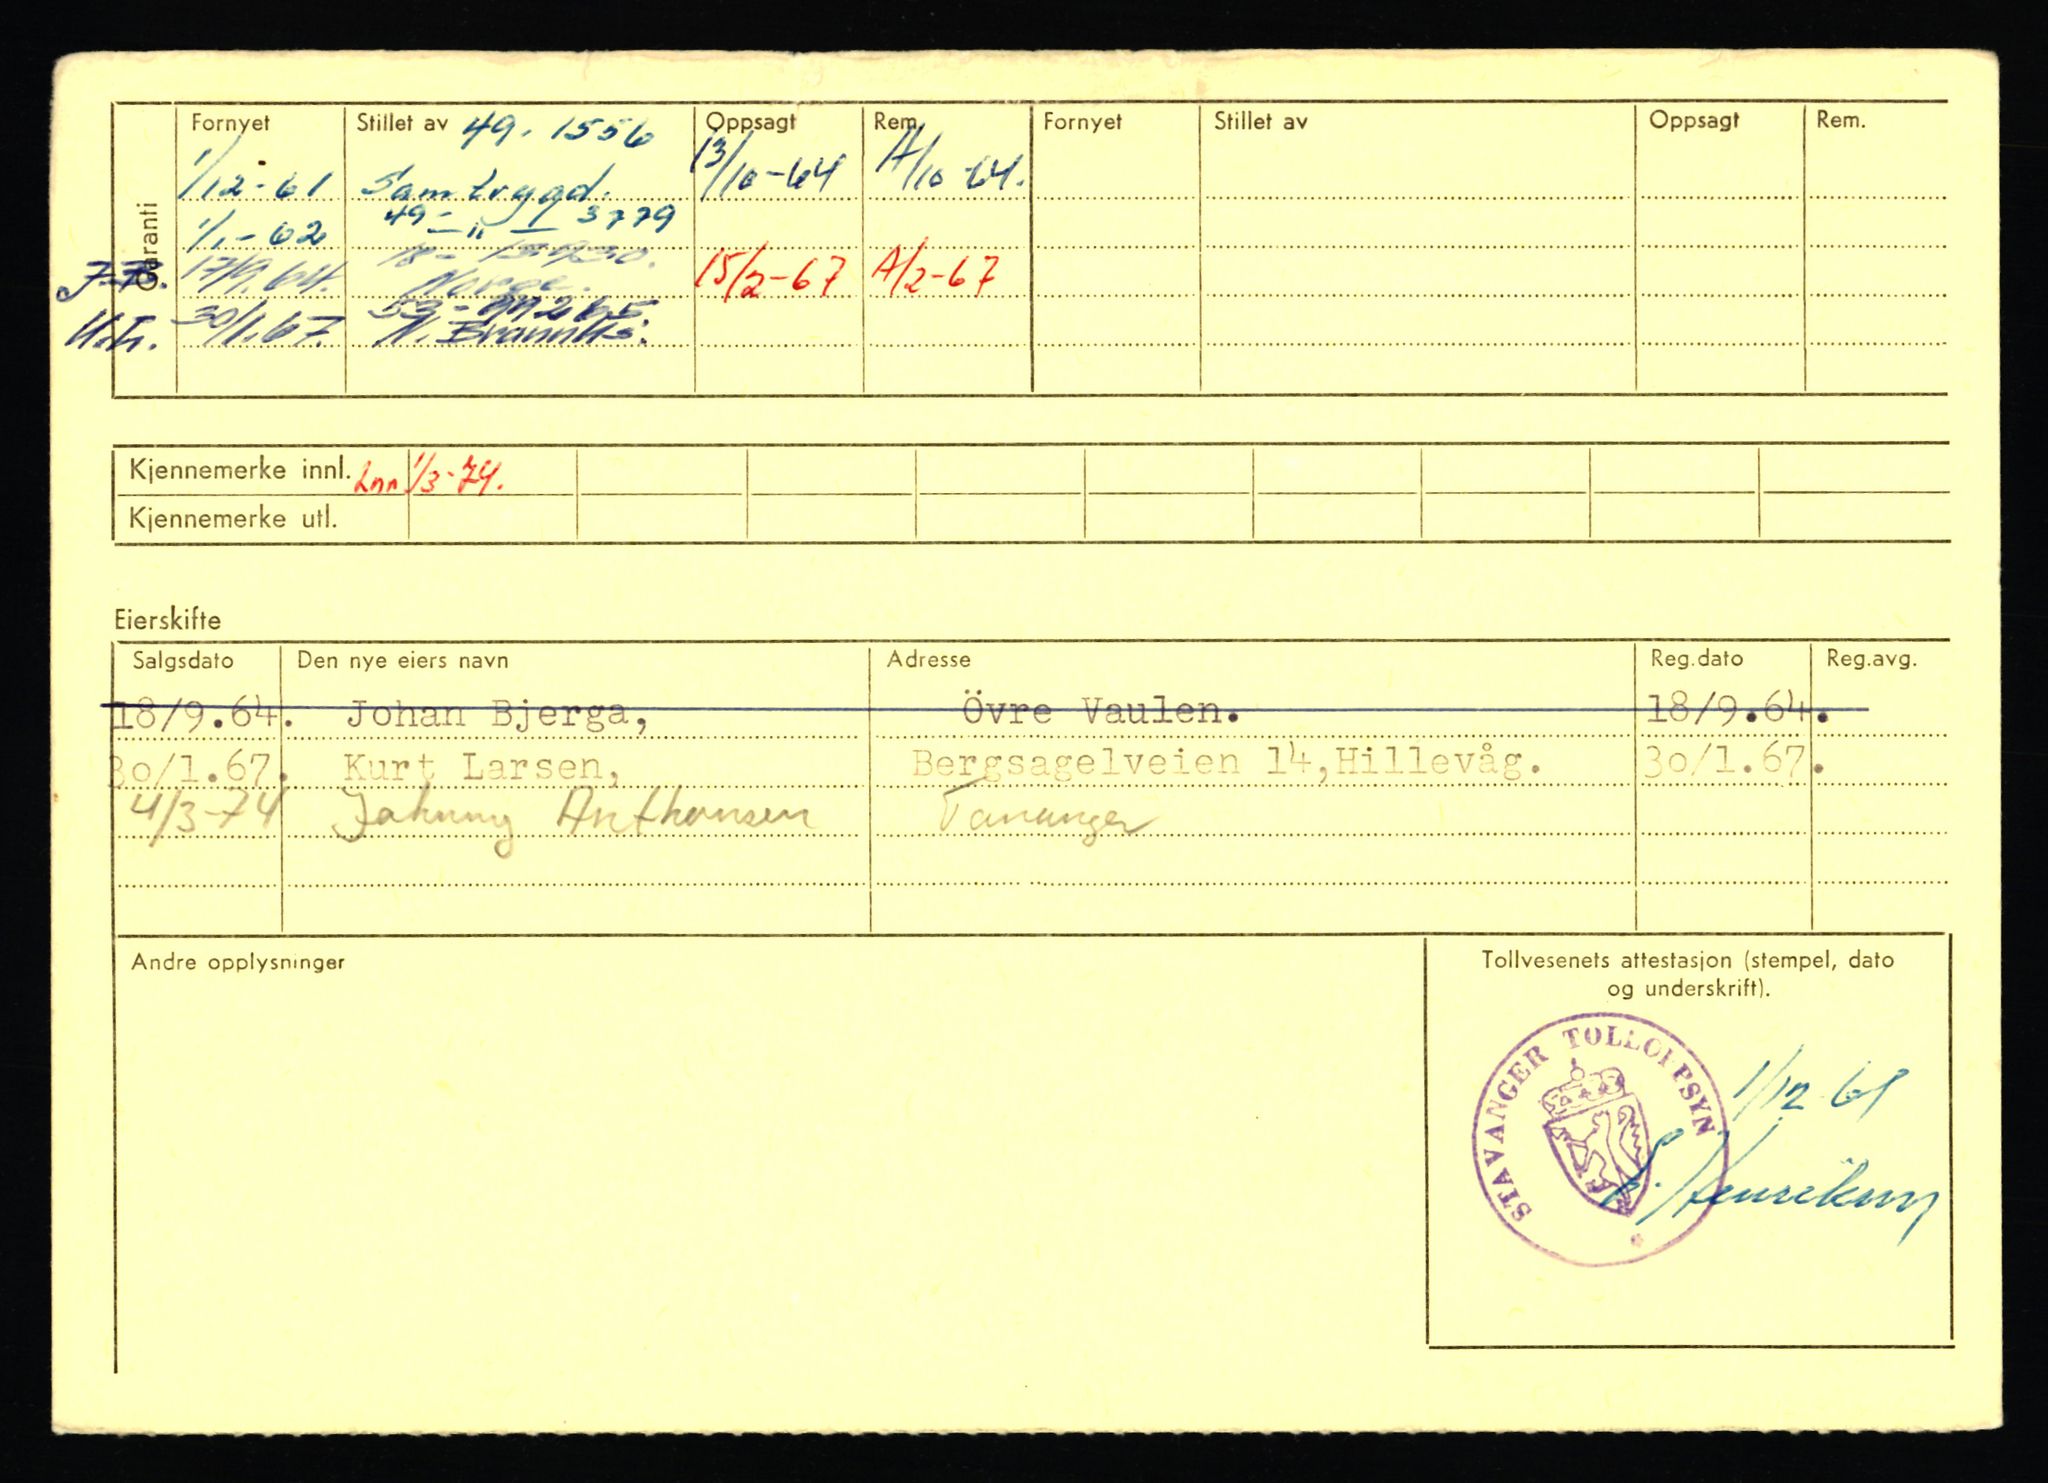 Garanti
Fornyet Stillet av 49. 1556 Oppsagt Rem. Fornyet Stillet av Oppsagt Rem.
1/12-61 Samtrygd. 13/10-64 A/10-64.
1/1-62 49- " - 3779
17/9.64. Norge. 15/2-67 A/2-67
30/1.67.
Kjennemerke innl. Inn 1/3-74.
Kjennemerke utl.
Eierskifte
Salgsdato Den nye eiers navn Adresse Reg.dato Reg.avg.
18/9.64. Johan Bjerga, Övre Vaulen. 18/9.64.
30/1.67. Kurt Larsen, Bergsagelveien 14,Hillevåg. 30/1.67.
4/3-74 Johnny Anthonsen Tananger
Andre opplysninger
Tollvesenets attestasjon (stempel, dato
og underskrift).
STAVANGER TOLLOPPSYN
1/12 61
Henriksen